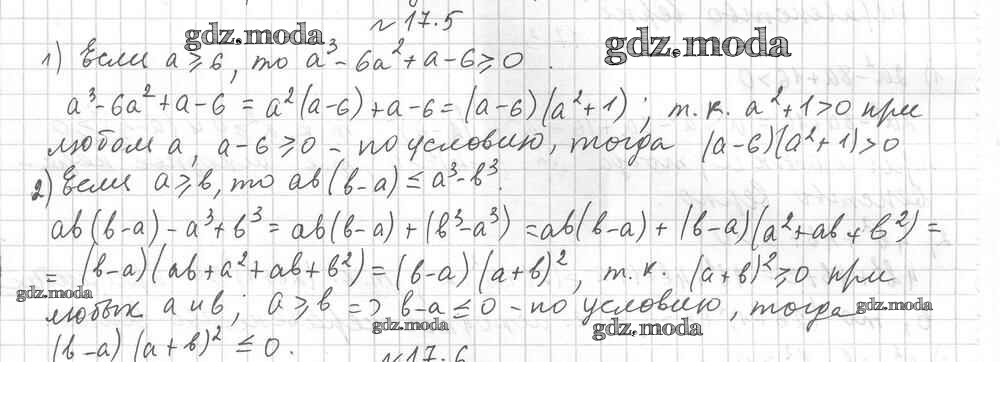 № 17.5
gdz.moda
gdz.moda
1) Если a ⩾ 6, то a³ - 6a² + a - 6 ⩾ 0.
a³ - 6a² + a - 6 = a²(a-6) + a - 6 = (a-6)(a²+1); т.к. a²+1>0 при
любом a, a-6 ⩾ 0 - по условию, тогда (a-6)(a²+1) > 0
2) Если a ⩾ b, то ab(b-a) ≤ a³-b³.
ab(b-a) - a³ + b³ = ab(b-a) + (b³-a³) = ab(b-a) + (b-a)(a²+ab+b²) =
= (b-a)(ab+a²+ab+b²) = (b-a)(a+b)², т.к. (a+b)² ⩾ 0 при
gdz.moda
любых a и b; a ⩾ b => b-a ≤ 0 - по условию, тогда
gdz.moda
gdz.moda
gdz.moda
(b-a)(a+b)² ≤ 0.
№ 17.6